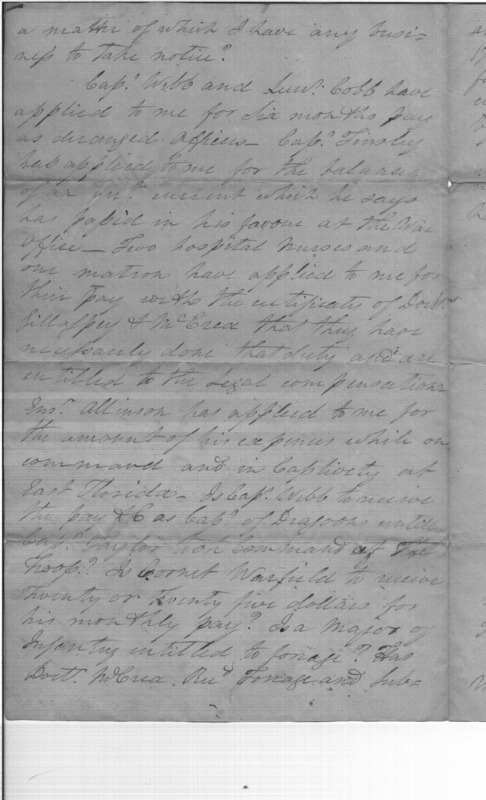 a matter of which I have any busi-
ness to take notice?
Capt. Webb and Lieut. Cobb have
applied to me for Six months pay
as deranged officers — Capt. Tinsley
has applied to me for the balance
of an current which he says
has passed in his favour at the War
office — Two hospital Nurses and
one matron have applied to me for
their pay with the certificates of Doctr.
Gillaspey & McCrea that they have
necessarily done that duty and are
entitled to the Legal compensation
Ensn. Allinson has applied to me for
the amount of his expenses while on
command and in Captivity at
East Florida — Is Capt. Webb to receive
the pay &C as Capt. of Dragoons untill
Capt. Taylor took Command of The
Troop? Is Cornet Warfield to receive
twenty or twenty five dollars for
his monthly pay? Is a Major of
Infantry entitled to forage? Has
Doctr. McCrea Recd. Forage and Sub=